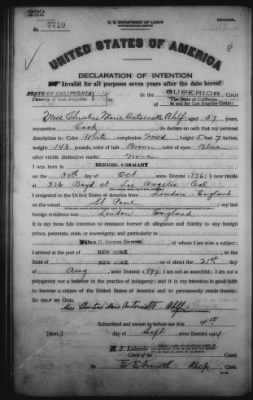 222
U. S. DEPARTMENT OF LABOR
No. 7710
UNITED STATES OF AMERICA
DECLARATION OF INTENTION
Invalid for all purposes seven years after the date hereof
STATE OF CALIFORNIA
County of Los Angeles
In the SUPERIOR Court
The State of California
in and for Los Angeles County
Marie Antoinette aged 37 years,
occupation Cook, do declare on oath that my personal
description is: Color White, complexion Med, height 5 feet 7 inches,
weight 142 pounds, color of hair Brown, color of eyes Blue
other visible distinctive marks None
I was born in BREMEN, GERMANY
on the day of Oct, anno Domini 1876; I now reside
at 326 Boyd St Los Angeles Cal
I emigrated to the United States of America from London England
on the vessel St Paul; my last
foreign residence was London England
It is my bona fide intention to renounce forever all allegiance and fidelity to any foreign
prince, potentate, state, or sovereignty, and particularly to
William II German Emperor, of whom I am now a subject;
I arrived at the port of NEW YORK, in the
State of NEW YORK on or about the 21st day
of Aug, anno Domini 1897; I am not an anarchist; I am not a
polygamist nor a believer in the practice of polygamy; and it is my intention in good faith
to become a citizen of the United States of America and to permanently reside therein:
SO HELP ME GOD.
Subscribed and sworn to before me this 4th
[SEAL] day of Sept, anno Domini 1914
H. J. Lelande
Clerk of the Court.
By Clerk.